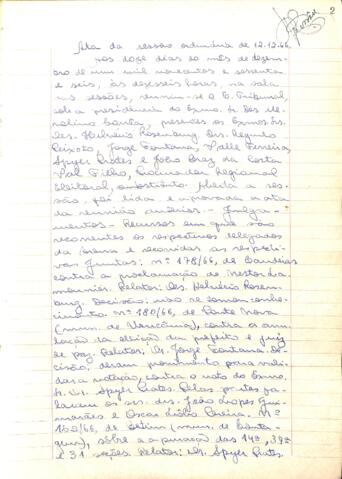 2
Ata da sessão ordinária de 12-12-66.
Aos doze dias do mês de dezem-
bro de um mil novecentos e sessenta
e seis, às dezesseis horas, na sala
das sessões, reuniu-se o E. Tribunal,
sob a presidência do Exmo. Sr. Des.
presentes os Exmos. Srs.
Des. Helvécio Rosenburg, Drs. Régulo
Peixoto, Jorge Fontana, Valle Ferreira,
Spyer Prates e João Braz da Costa
Val Filho, Procurador Regional
Eleitoral, substituto. Aberta a ses-
são, foi lida e aprovada a ata
da reunião anterior. - Julga-
mentos - Recursos em que são
recorrentes os respectivos delegados
da Arena e recorridas as respecti-
vas Juntas: nº 178/66, de Candeias
contra a proclamação de Nestor La-
mounier. Relator: Des. Helvécio Rosen-
burg. Decisão: não se tomou conhe-
cimento. Nº 180/66, de Ponte Nova
(mun. de Urucânia), contra a anu-
lação da eleição de prefeito e juiz
de paz. Relator: Dr. Jorge Fontana. De-
cisão: deram provimento para vali-
dar a votação, contra o voto do Exmo.
Sr. Dr. Spyer Prates. Pelas partes fa-
laram os srs. drs. João Lopes Gui-
marães e Oscar Dias Corrêa. Nº
152/66, de Betim (mun. de Conta-
gem), sôbre a apuração das 14ª, 39ª
e 31 seções. Relator: Dr. Spyer Prates